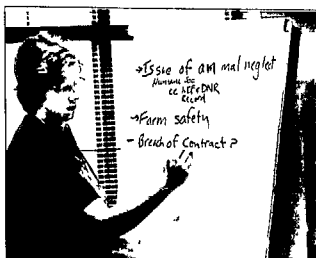 →Issue of animal neglect
Humane Soc
CC
DNR
→Farm safety
- Breach of Contract?